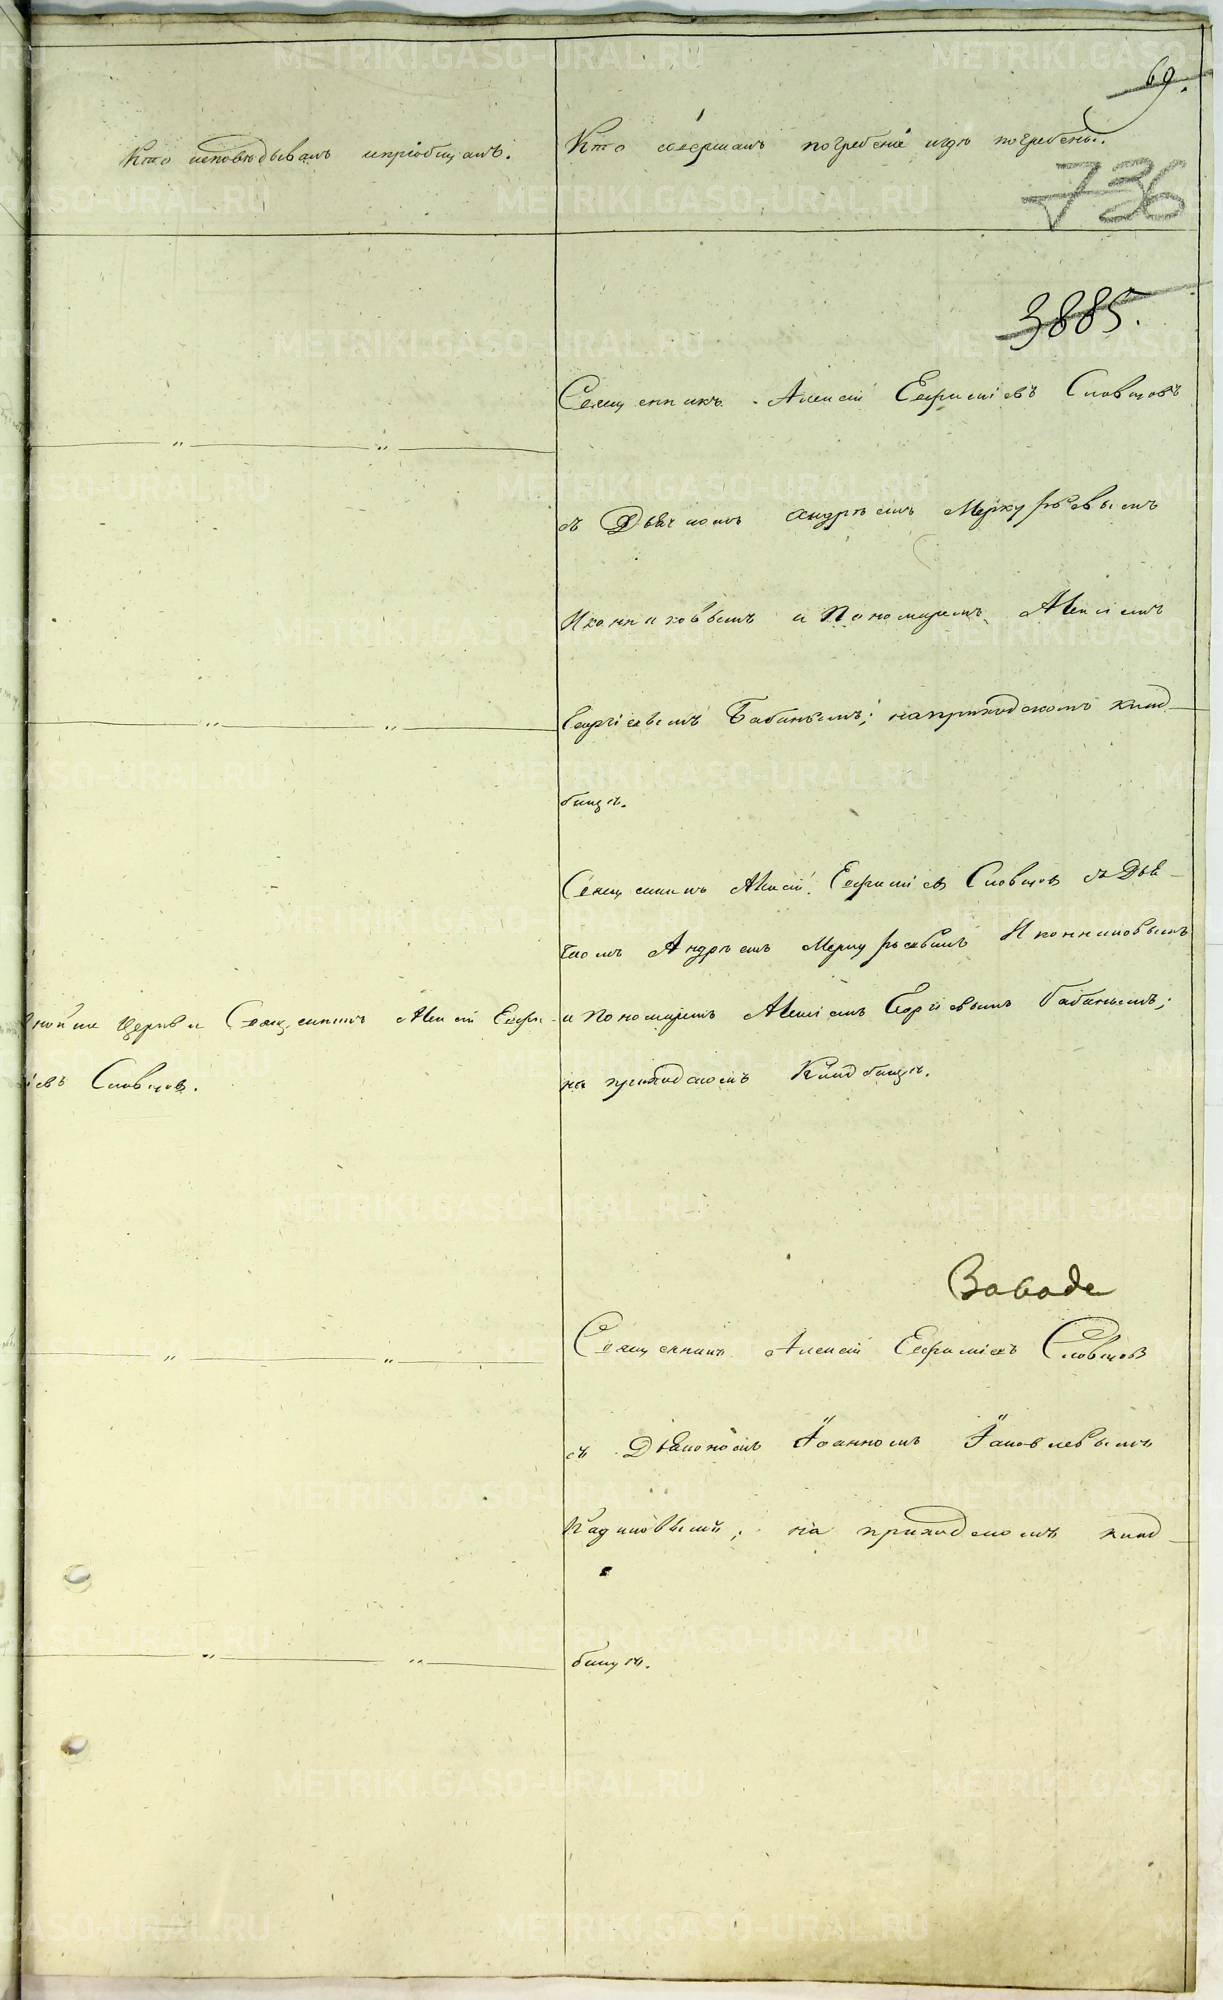 69.
Кто исповѣдывалъ и пріобщалъ.
Кто совершалъ погребеніе и гдѣ погребены.
736
3885.
Священникъ Алексій Евфиміевъ Словцовъ
съ Дьячкомъ Андрѣемъ Меркурьевымъ
Иконниковымъ и Пономаремъ Алексіемъ
Георгіевымъ Бабинымъ; на приходскомъ клад
бищѣ.
Священникъ Алексій Евфиміевъ Словцовъ съ Дья-
чкомъ Андрѣемъ Меркурьевымъ Иконниковымъ
и Пономаремъ Алексіемъ Георгіевымъ Бабинымъ;
на приходскомъ Кладбищѣ.
Церкви Священникъ Алексій Евфи-
іевъ Словцовъ.
Священникъ Алексій Евфиміевъ Словцовъ
съ Дьякономъ Іоанномъ Іаковлевымъ
на приходскомъ клад
бищѣ.
METRIKI.GASO-URAL.RU